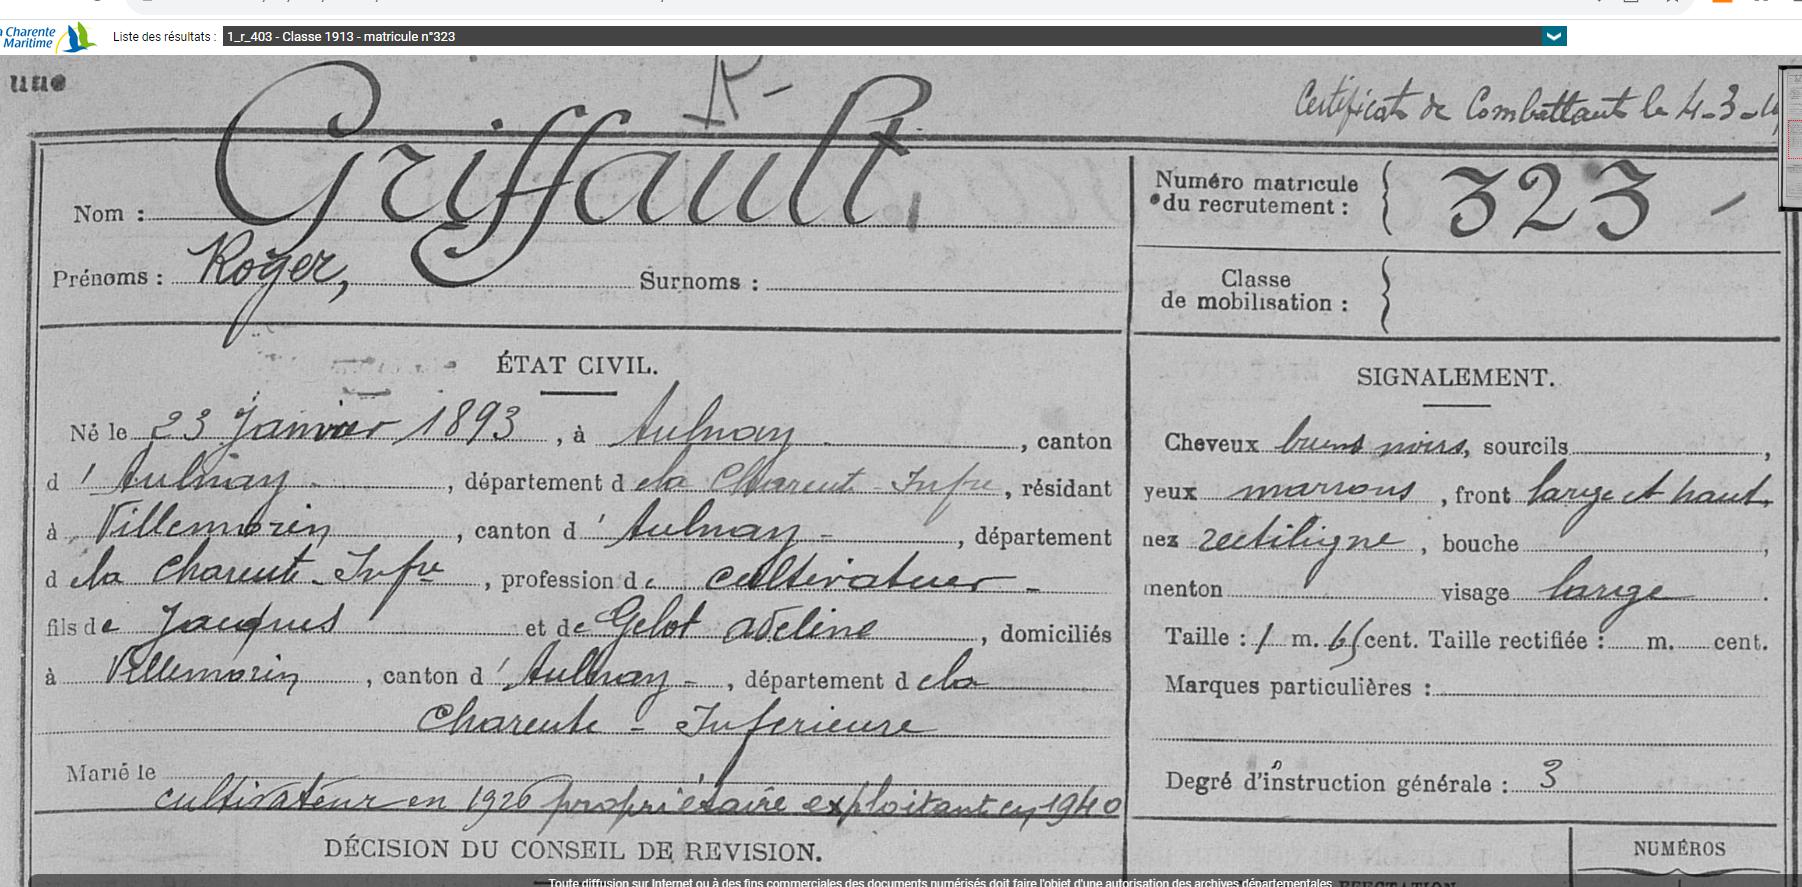 a Charente
Maritime
Liste des résultats : 1_r_403 - Classe 1913 - matricule n°323
Certificat de Combattant le 4-3-
Nom : Griffault
Prénoms : Roger, Surnoms :
Numéro matricule
du recrutement : 323
Classe
de mobilisation :
ÉTAT CIVIL.
Né le 23 Janvier 1893, à Aulnay, canton
d'Aulnay, département de la Charente Infre, résidant
à Villemorin, canton d'Aulnay, département
de la Charente-Infre, profession de cultivateur
fils de Jacques et de Gelot Adeline, domiciliés
à Villemorin, canton d'Aulnay, département de la
Charente-Inférieure
Marié le
cultivateur en 1926 propriétaire exploitant en 1940
DÉCISION DU CONSEIL DE REVISION.
SIGNALEMENT.
Cheveux bruns noirs, sourcils ,
yeux marrons, front large et haut,
nez rectiligne, bouche ,
menton visage large.
Taille : 1 m. 65 cent. Taille rectifiée : m. cent.
Marques particulières :
Degré d'instruction générale : 3
NUMÉROS
Toute diffusion sur Internet ou à des fins commerciales des documents numérisés doit faire l'objet d'une autorisation des archives départementales